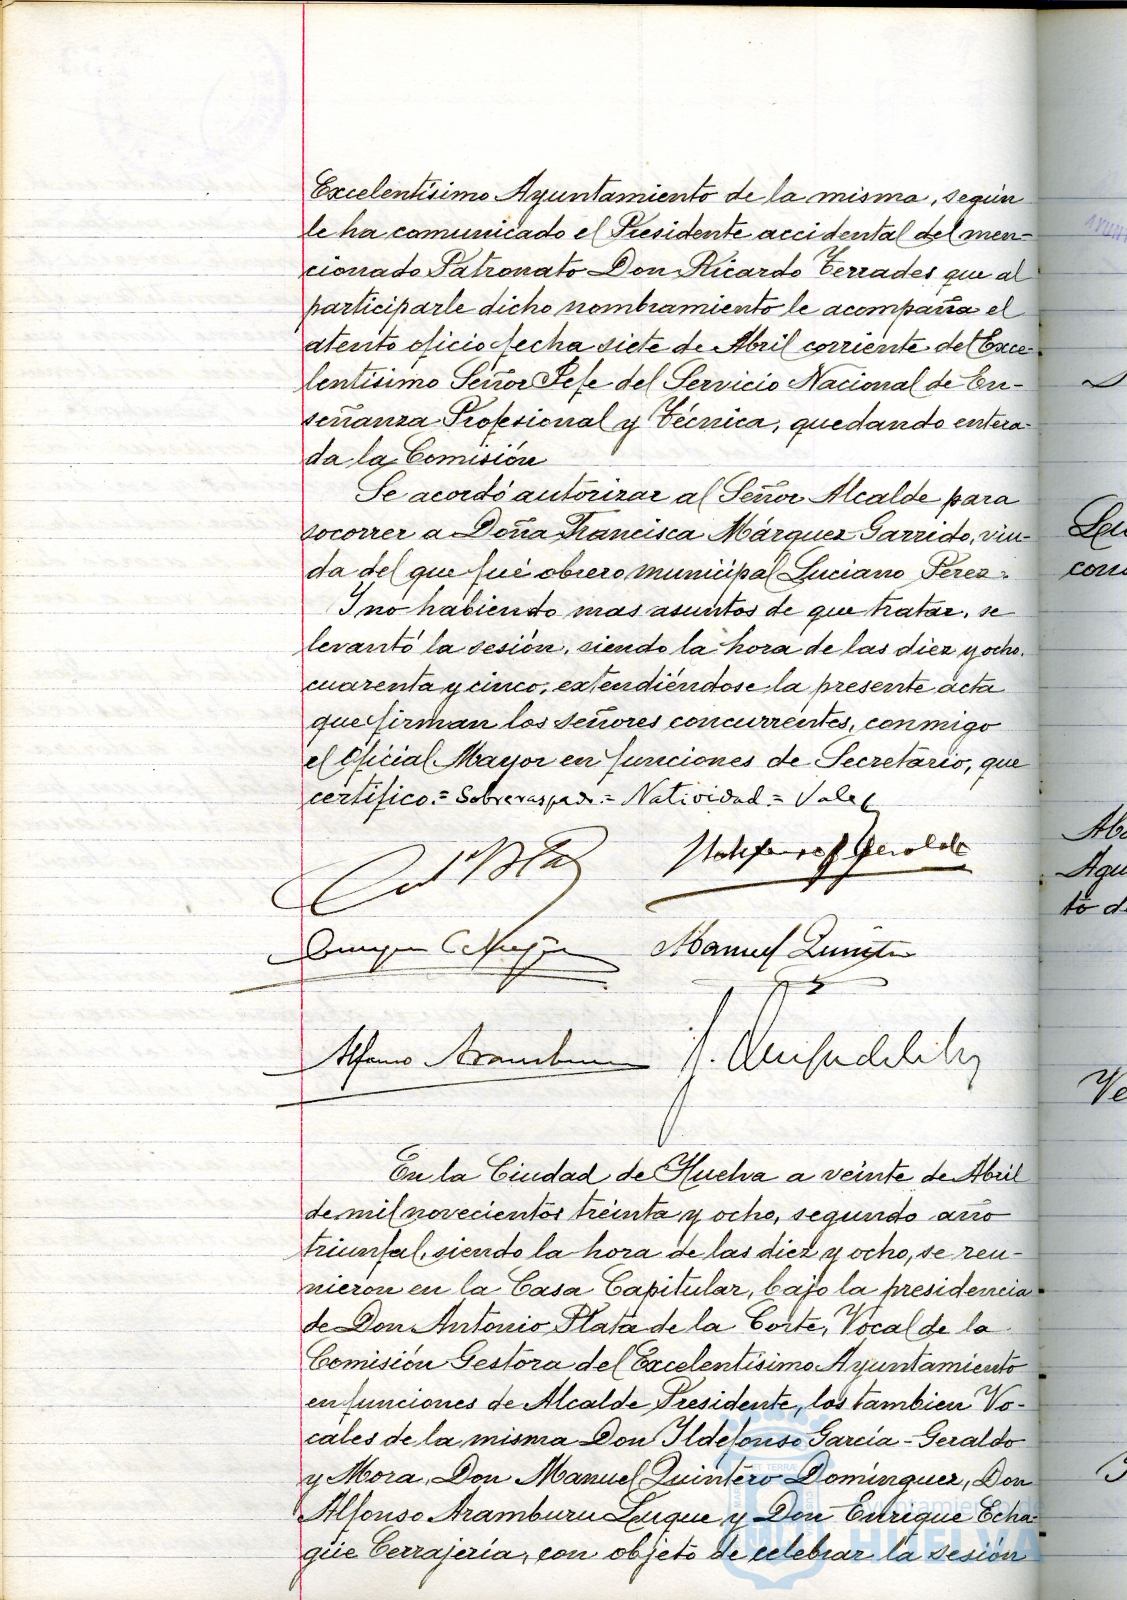 Excelentísimo Ayuntamiento de la misma, según
le ha comunicado el Presidente accidental del men-
cionado Patronato Don Ricardo Terrades que al
participarle dicho nombramiento le acompaña el
atento oficio fecha siete de Abril corriente del Exce-
lentísimo Señor Jefe del Servicio Nacional de En-
señanza Profesional y Técnica, quedando entera-
da la Comisión
Se acordó autorizar al Señor Alcalde para
socorrer a Doña Francisca Márquez Garrido, viu-
da del que fué obrero municipal Luciano Perez.
Y no habiendo mas asuntos de que tratar, se
levantó la sesión, siendo la hora de las diez y ocho,
cuarenta y cinco, extendiéndose la presente acta
que firman los señores concurrentes, conmigo
el Oficial Mayor en funciones de Secretario, que
certifico.= Sobrerraspado.= Natividad = Vale
Ildefonso G Geraldo
Manuel Quintero
Alfonso Aramburu
En la Ciudad de Huelva a veinte de Abril
de mil novecientos treinta y ocho, segundo año
triunfal, siendo la hora de las diez y ocho, se reu-
nieron en la Casa Capitular, bajo la presidencia
de Don Antonio Plata de la Corte, Vocal de la
Comisión Gestora del Excelentísimo Ayuntamiento
en funciones de Alcalde Presidente, los tambien Vo-
cales de la misma Don Ildefonso García-Geraldo
y Mora, Don Manuel Quintero Domínguez, Don
Alfonso Aramburu Luque y Don Enrique Echa-
güe Cerrajería, con objeto de celebrar la sesión
Ayuntamiento de
HUELVA